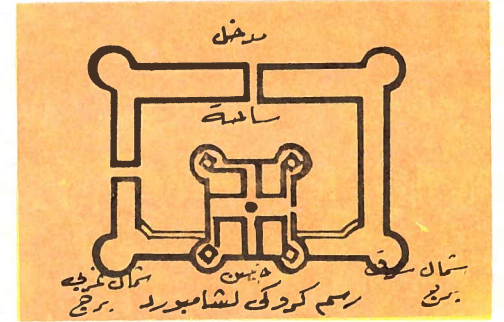 مدخل
ساحة
شمال شرقي
برج
شمال غربي
برج
رسم كروكى لشامبورد